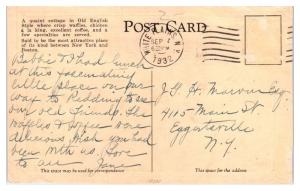 A quaint cottage in Old English
style where crisp waffles, chicken
a la king, excellent coffee, and a
few specialties are served.
Said to be the most attractive place
of its kind between New York and
Boston.
POST CARD
SEP
1932
N.Y.
Bobbie & I had lunch
at this fascinating
little place on our
way to Redding to see
our old friends. The
waffles & coffee were
delicious. Wish you had
been with us. Love
to all
Jane
J. H.
4105 Main St.
Eggertsville
N.Y.
This space may be used for correspondence
This space for the address